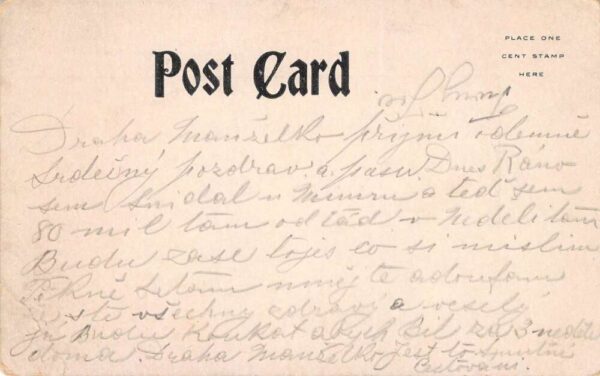 PLACE ONE
CENT STAMP
HERE
Post Card
Draha Manželko přijmi odemně
Srdečný pozdrav a pusu Dnes Ráno
sem Snidal v a teď sem
80 mil tam odtád v Neděli tam
Budu zase tojes co si mislim
Pěkně se tam mněj te a doufam
že ste všechny zdraví a veselý
já Budu koukat abych Bil za 3 neděle
doma Draha Manželko Jest to smutné
Cestovani